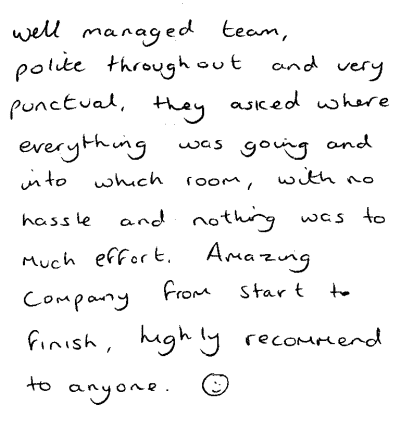 well managed team,
polite throughout and very
punctual, they asked where
everything was going and
into which room, with no
hassle and nothing was to
much effort. Amazing
Company from start to
finish, highly recommend
to anyone. ☺